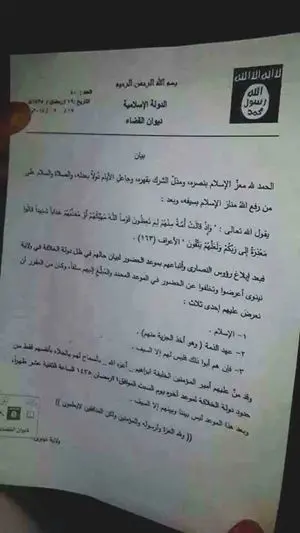 بسم الله الرحمن الرحيم
الدولة الإسلامية
ديوان القضاء
العدد : ٤٠
التاريخ : ١٩ / رمضان / ١٤٣٥هـ
لا اله الا الله
الله
رسول
محمد
بيان
الحمد لله معزّ الإسلام بنصره، ومذلّ الشرك بقهره، وجاعل الأيام دُولاً بعدله، والصلاة والسلام على
من رفع اللهُ منارَ الإسلامِ بسيفه، وبعد :
يقول الله تعالى : " وَإِذْ قَالَتْ أُمَّةٌ مِنْهُمْ لِمَ تَعِظُونَ قَوْمًا اللَّهُ مُهْلِكُهُمْ أَوْ مُعَذِّبُهُمْ عَذَابًا شَدِيدًا قَالُوا
مَعْذِرَةً إِلَى رَبِّكُمْ وَلَعَلَّهُمْ يَتَّقُونَ " الأعراف (١٦٤) .
فبعد إبلاغ رؤوس النصارى وأتباعهم بموعد الحضور لبيان حالهم في ظل دولة الخلافة في ولاية
نينوى أعرضوا وتخلفوا عن الحضور في الموعد المحدد والمُبَلَّغ إليهم سلفاً، وكان من المقرر أن
نعرض عليهم إحدى ثلاث :
١- الإسلام .
٢- عهد الذمة ( وهو أخذ الجزية منهم ) .
٣- فإن هم أبوا ذلك فليس لهم إلا السيف .
وقد منّ عليهم أمير المؤمنين الخليفة إبراهيم _ أعزه الله _ بالسماح لهم بالجلاء بأنفسهم فقط من
حدود دولة الخلافة لموعد آخره يوم السبت الموافق ٢١ رمضان ١٤٣٥ الساعة الثانية عشر ظهراً،
وبعد هذا الموعد ليس بيننا وبينهم إلا السيف .
(( ولله العزة ولرسوله وللمؤمنين ولكن المنافقين لا يعلمون ))
ديوان القضاء
ولاية نينوى